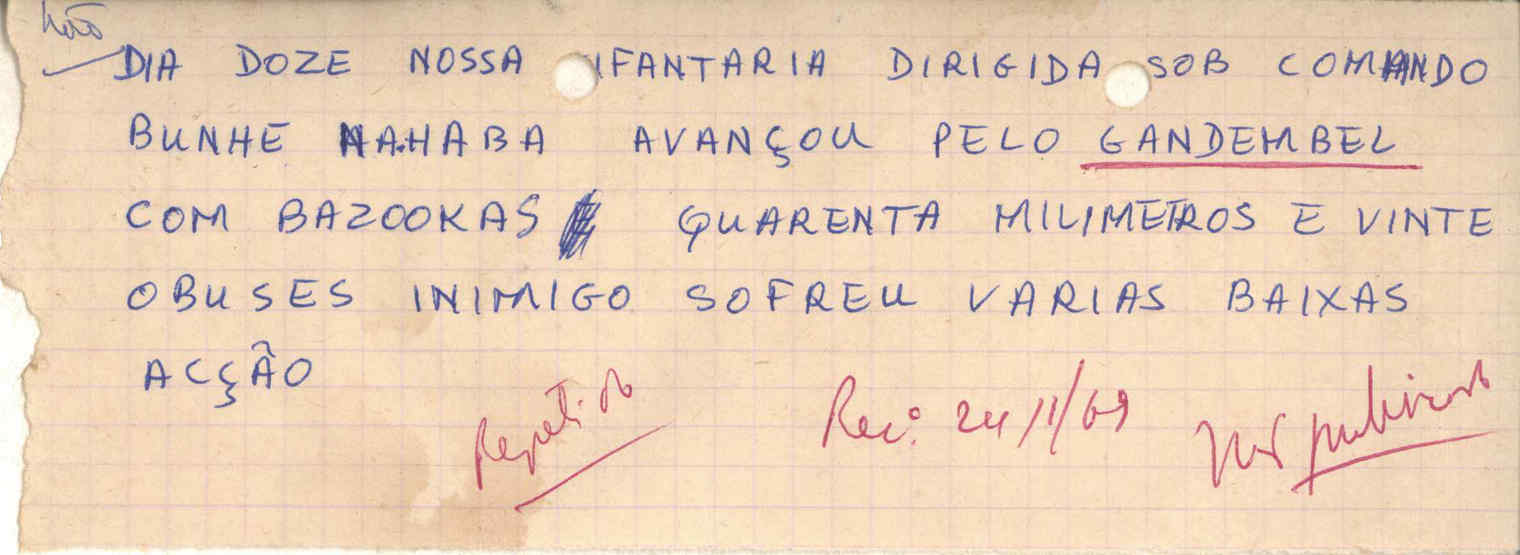 Não
DIA DOZE NOSSA IFANTARIA DIRIGIDA SOB COMANDO
BUNHE NA.HABA AVANÇOU PELO GANDEMBEL
COM BAZOOKAS QUARENTA MILIMETROS E VINTE
OBUSES INIMIGO SOFREU VARIAS BAIXAS
ACÇÃO
Repetido
Rec: 24/1/69